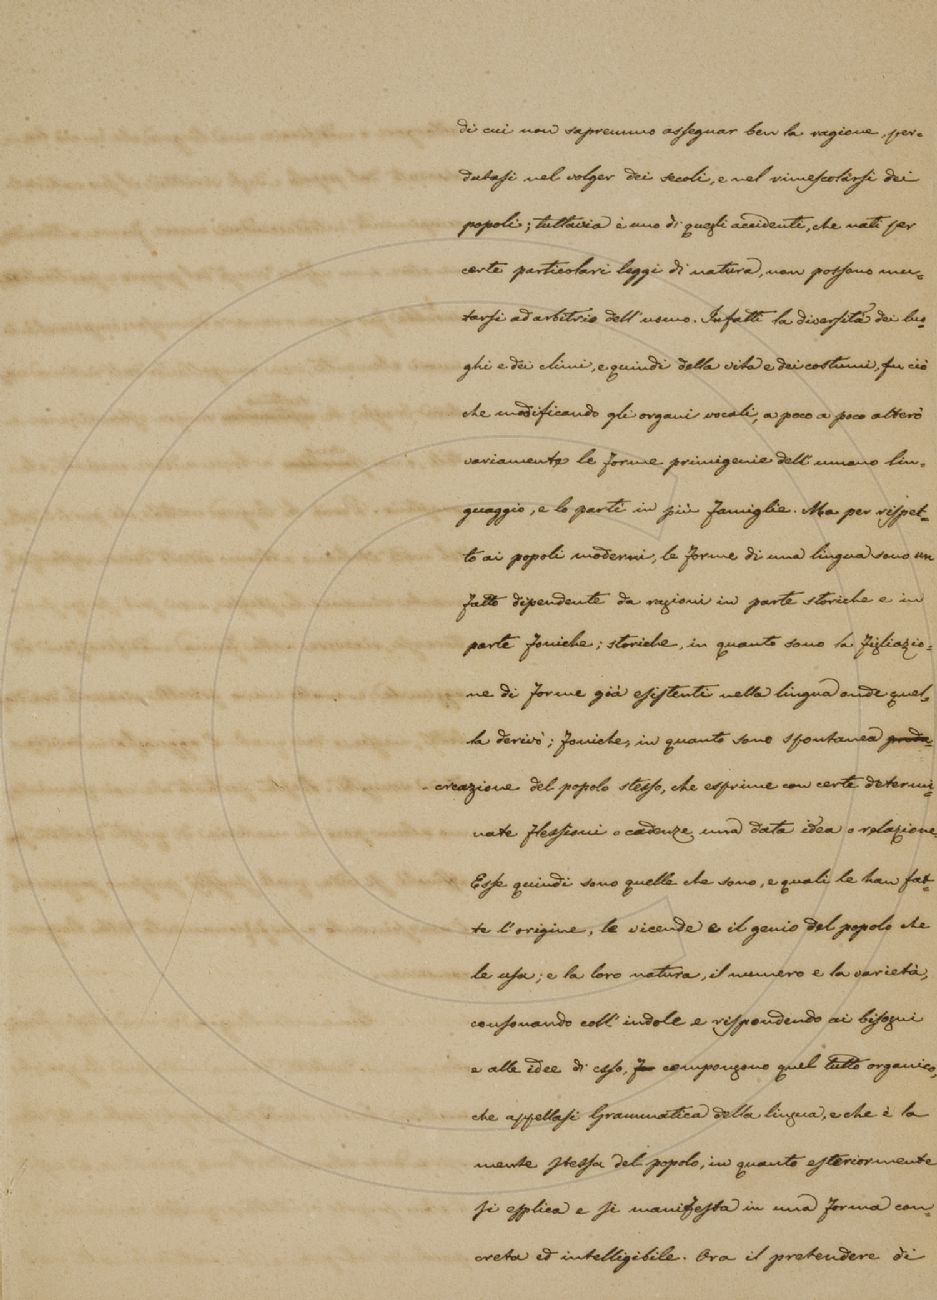 di cui non sapremmo assegnar ben la ragione, per-
dutasi nel volger dei secoli, e nel rimescolarsi dei
popoli; tuttavia è uno di quegli accidenti, che nati per
certe particolari leggi di natura, non possono mu-
tarsi ad arbitrio dell'uomo. Infatti la diversità dei luo-
ghi e dei climi, e quindi della vita e dei costumi, fu ciò
che modificando gli organi vocali, a poco a poco alterò
variamente le forme primigenie dell'umano lin-
guaggio, e lo partì in più famiglie. Ma per rispet-
to ai popoli moderni, le forme di una lingua sono un
fatto dipendente da ragioni in parte storiche e in
parte foniche; storiche, in quanto sono la figliazio-
ne di forme già esistenti nella lingua onde quel-
la derivò; foniche, in quanto sono spontanea produ-
creazione del popolo stesso, che esprime con certe determi-
nate flessioni o cadenze una data idea o relazione.
Esse quindi sono quelle che sono, e quali le han fat-
te l'origine, le vicende e il genio del popolo che
le usa; e la loro natura, il numero e la varietà,
consonando coll'indole e rispondendo ai bisogni
e alle idee di esso, compongono quel tutto organico,
che appellasi Grammatica della lingua, e che è la
mente stessa del popolo, in quanto esteriormente
si esplica e si manifesta in una forma con-
creta ed intelligibile. Ora il pretendere di